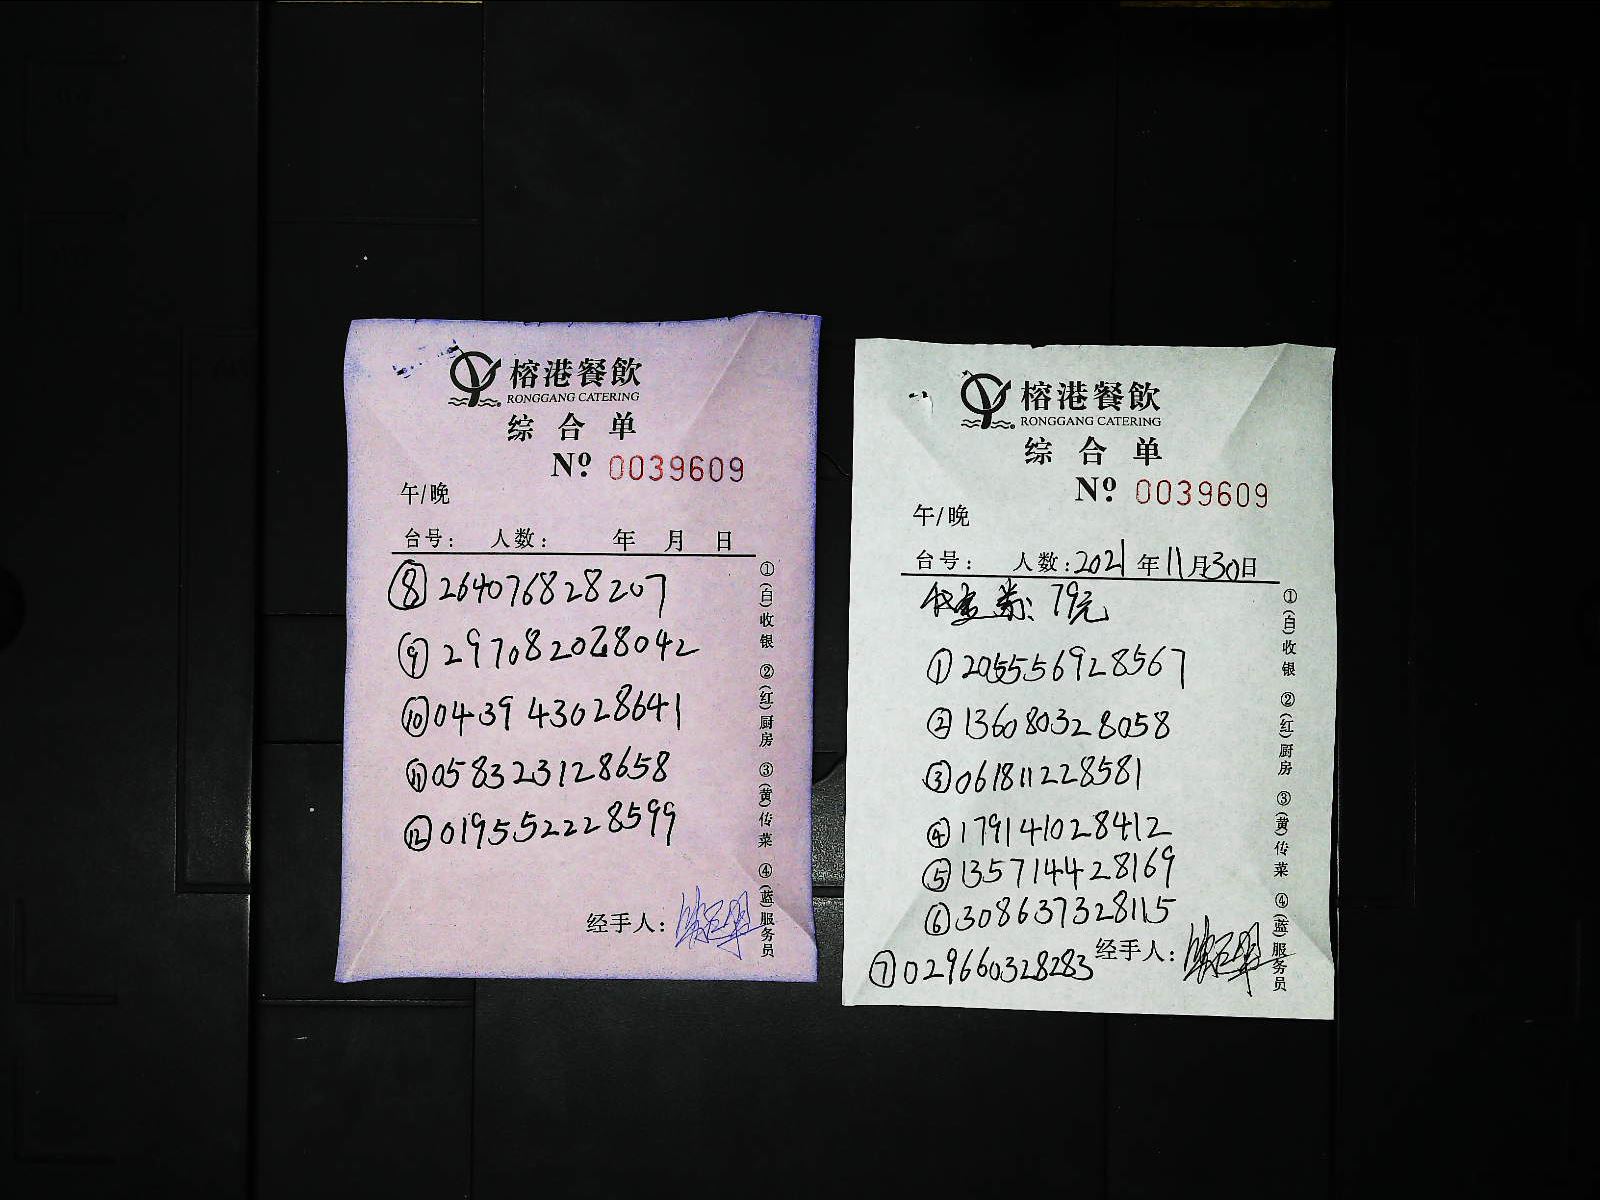 榕港餐飲
RONGGANG CATERING
综合单
Nº 0039609
午/晚
台号: 人数: 年 月 日
⑧ 264076828207
⑨ 297082028042
⑩ 043943028641
⑪ 058323128658
⑫ 019552228599
经手人:
①(白)收银 ②(红)厨房 ③(黄)传菜 ④(蓝)服务员
榕港餐飲
RONGGANG CATERING
综合单
Nº 0039609
午/晚
台号: 人数: 2021年11月30日
券: 79元
① 205556928567
② 136080328058
③ 061811228581
④ 179141028412
⑤ 135714428169
⑥ 308637328115
⑦ 029660328283
经手人:
①(白)收银 ②(红)厨房 ③(黄)传菜 ④(蓝)服务员